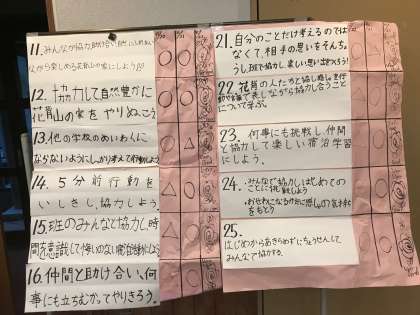 11.みんなが協力
ながら楽しめる
12. 協力して自然豊かに
花背山の家をやりぬこう
13.他の学校のめいわくに
ならないようにしっかり考えて行動しよう
14.5分前行動を
いしきし、協力しよう。
15.班のみんなと協力し時
間を意識して悔いのない
16.仲間と助け合い、何
事にも立ちむかってやりきろう。
21.自分のことだけ考えるのでは
なくて、相手の思いをそんちょ
うし、班で協力し、楽しい思い出を作ろう!
22.花背の人たちと
表しながら協力し合うこと
について学ぶ。
23. 何事にも挑戦し、仲間
と協力して楽しい宿泊学習
にしよう。
24.・みんなで協力しはじめての
ことに挑戦しよう
・おせわになる方に感しゃの気持ちを
をもとう
25.
はじめからあきらめずにちょうせんして
みんなで協力する。